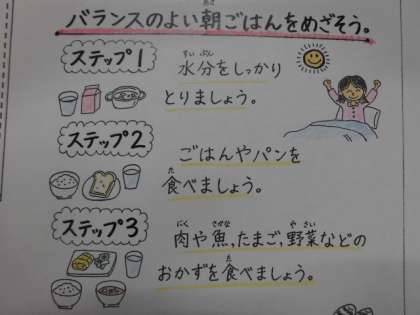 バランスのよい朝ごはんをめざそう。
ステップ1
水分をしっかり
とりましょう。
ステップ2
ごはんやパンを
食べましょう。
ステップ3
肉や魚、たまご、野菜などの
おかずを食べましょう。